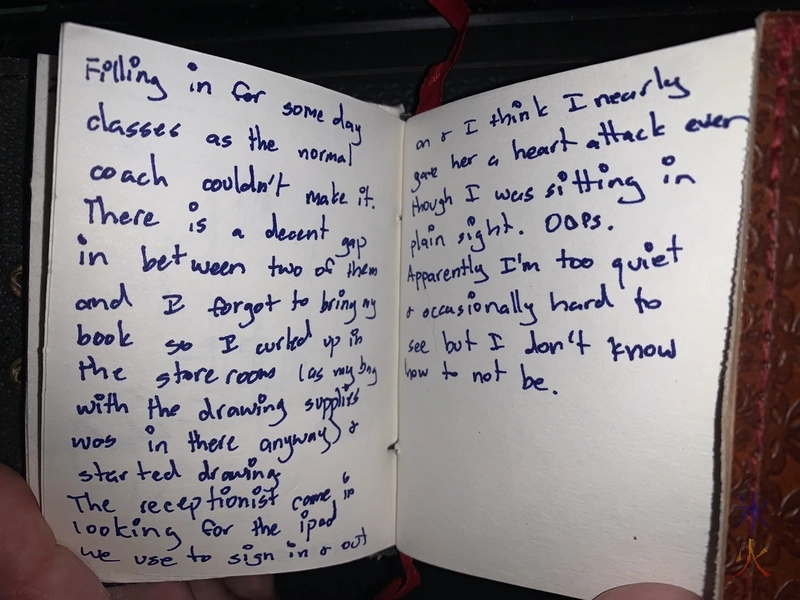 Filling in for some day
classes as the normal
coach couldn't make it.
There is a decent gap
in between two of them
and I forgot to bring my
book so I curled up in
the store room (as my bag
with the drawing supplies
was in there anyway) &
started drawing
The receptionist came in
looking for the ipad
we use to sign in & out
on & I think I nearly
gave her a heart attack even
though I was sitting in
plain sight. OOPS.
Apparently I'm too quiet
& occasionally hard to
see but I don't know
how to not be.